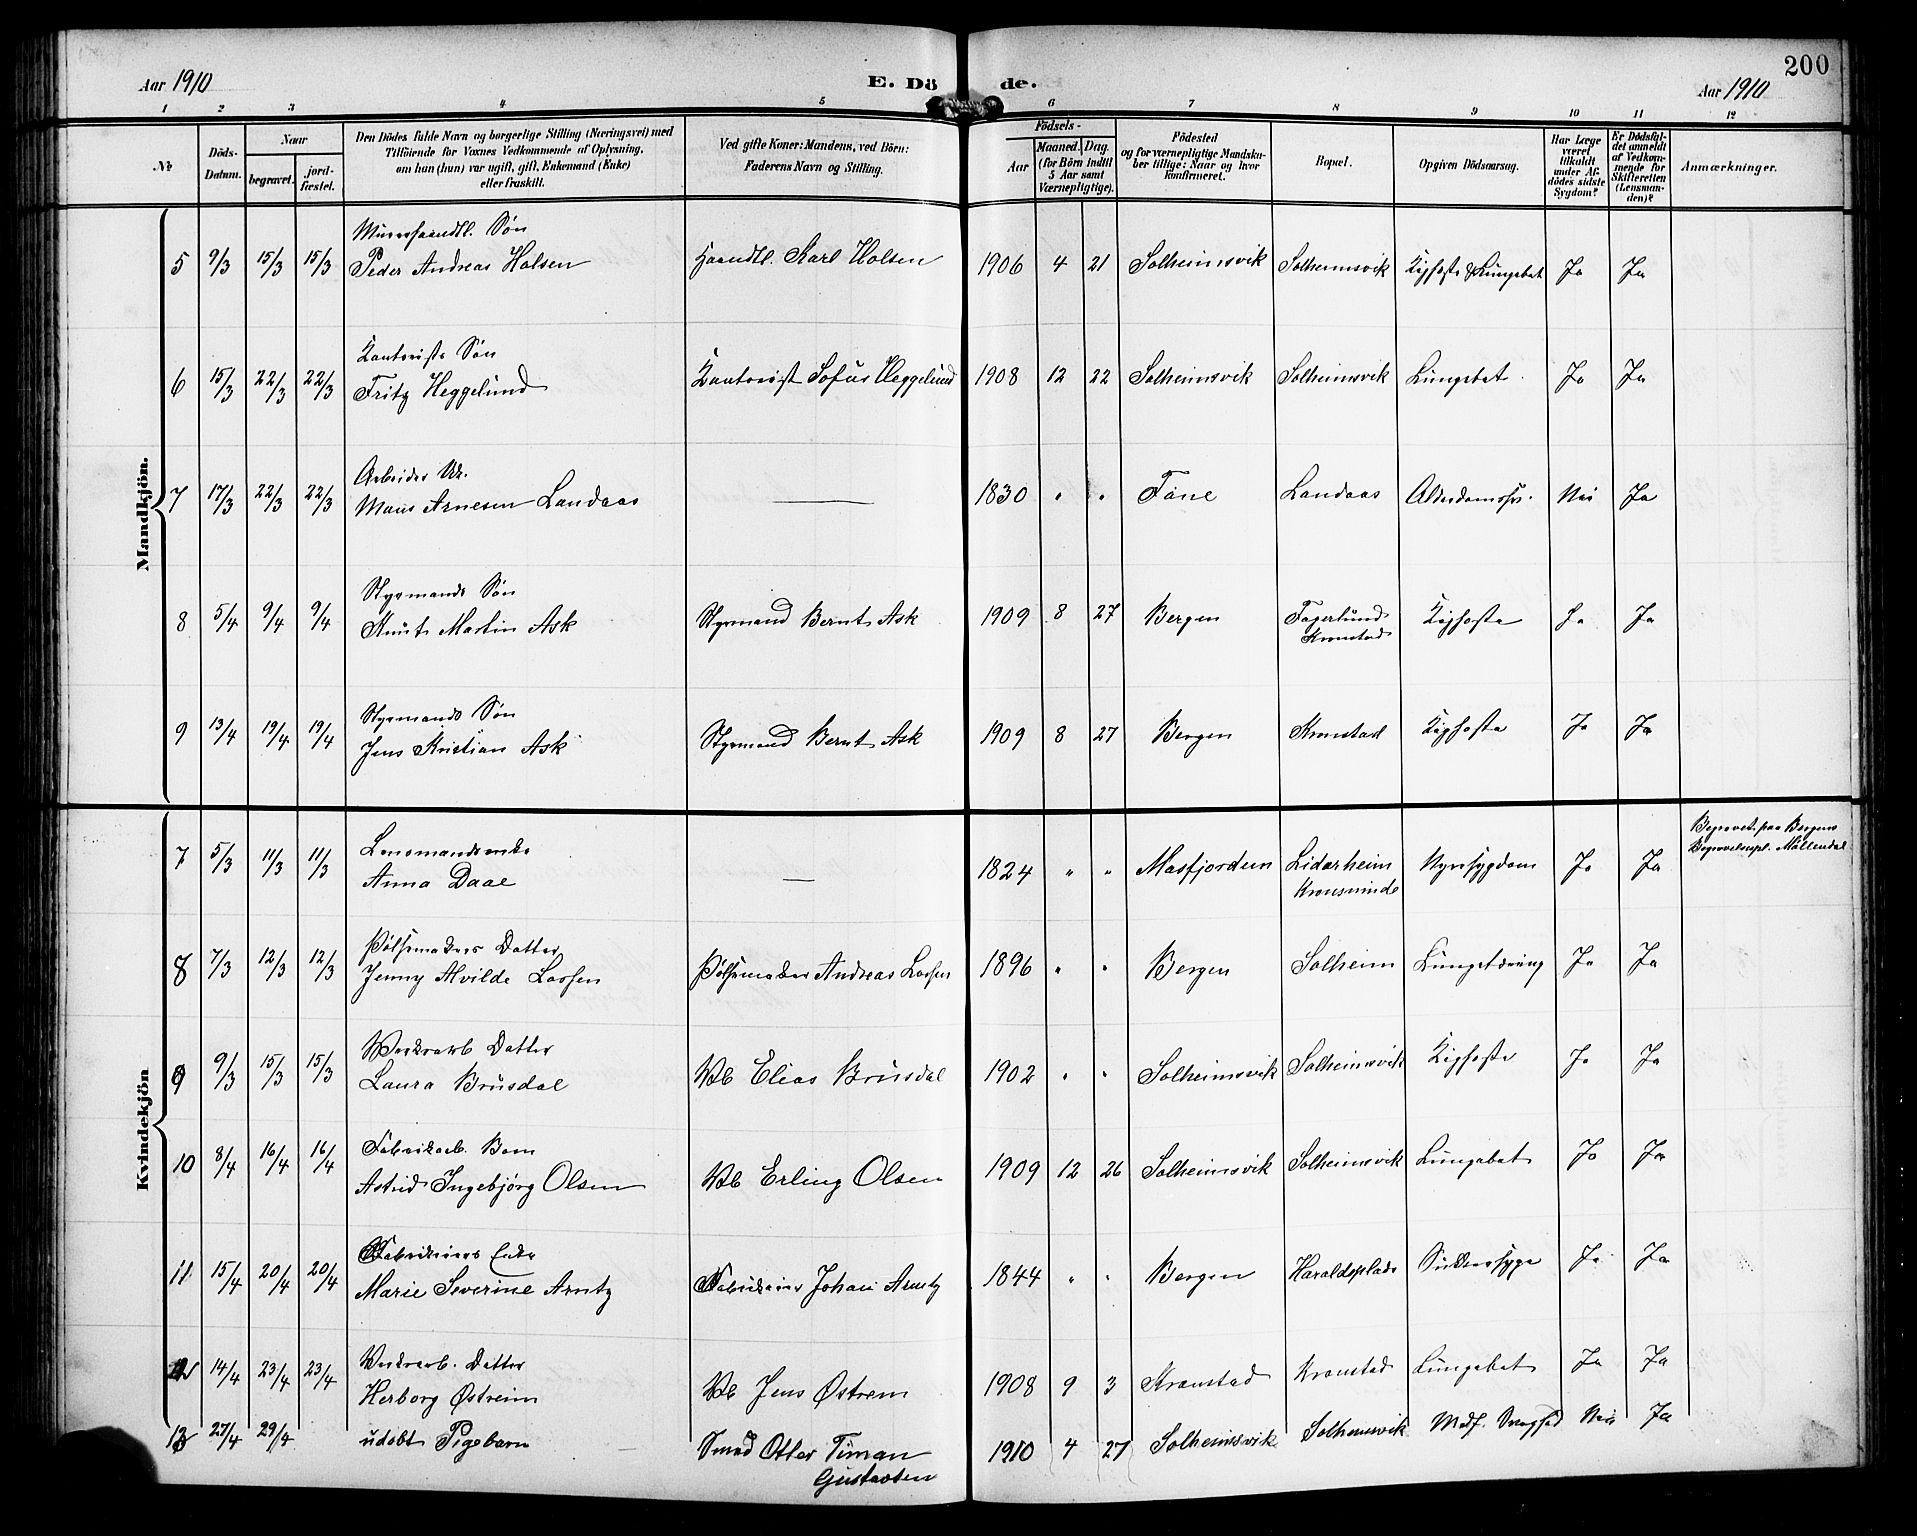 200
Aar 1910
E. Döde.
Aar 1910
1 2 3 4 5 6 7 8 9 10 11 12
No
Döds-Datum.
Naar
begravet.
jordfæstet.
Den Dödes fulde Navn og borgerlige Stilling (Næringsvei) med
Tilföiende for Voxnes Vedkommende af Oplysning,
om han (hun) var ugift, gift, Enkemand (Enke)
eller fraskilt.
Ved gifte Koner: Mandens, ved Börn:
Faderens Navn og Stilling.
Födsels-
Aar
Maaned. Dag.
(for Börn indtil
5 Aar samt
Værnepligtige).
Födested
og for værnepligtige Mandskaber tillige: Naar og hvor
konfirmeret.
Bopæl.
Opgiven Dödsaarsag.
Har Læge
været
tilkaldt
under Afdödes sidste
Sygdom?
Er Dödsfaldet anmeldt
af Vedkommende for
Skifteretten
(Lensmanden)?
Anmærkninger.
Mandkjön.
5 9/3 15/3 15/3 Murerhaandtl. Søn
Peder Andreas Holsen Haandtl. Karl Holsen 1906 4 21 Solheimsvik Solheimsvik Kighoste & Lungebet Ja Ja
6 15/3 22/3 22/3 Kontorists Søn
Fritz Heggelund Kontorist Sofus Heggelund 1908 12 22 Solheimsvik Solheimsvik Lungebet. Ja Ja
7 17/3 22/3 22/3 Arbeider
Mons Arnesen Landaas — 1830 " " Fane Landaas Nei Ja
8 5/4 9/4 9/4 Styrmands Søn
Knut Martin Ask Styrmand Bernt Ask 1909 8 27 Bergen Fagerlund
Kronstad Kighoste Ja Ja
9 13/4 19/4 19/4 Styrmands Søn
Jens Kristian Ask Styrmand Bernt Ask 1909 8 27 Bergen Kronstad Kighoste Ja Ja
Kvindekjön
7 5/3 11/3 11/3 Lensmandsenke
Anna Daae — 1824 " " Masfjorden Lidarheim
Kronsminde Nyresygdom Ja Ja Begravet paa Bergens
Begravelsespl. Møllendal
8 7/3 12/3 12/3 Pølsemakers Datter
Jenny Alvilde Lassen Pølsemaker Andreas Lassen 1896 " " Bergen Solheim Lungetæring Ja Ja
9 9/3 15/3 15/3 Verksarb Datter
Laura Brusdal Vb Elias Brusdal 1902 " " Solheimsvik Solheimsvik Kighoste Ja Ja
10 8/4 16/4 16/4 Fabrikarb. Barn
Astrid Ingebjörg Olsen Vb Erling Olsen 1909 12 26 Solheimsvik Solheimsvik Lungebet Ja Ja
11 15/4 20/4 20/4 Fabrikeiers Enke
Marie Severine Arntz Fabrikeier Johan Arntz 1844 " " Bergen Haraldsplads Sukkersyge Ja Ja
12 14/4 23/4 23/4 Verksarb. Datter
Herborg Østreim Vb Jens Østrem 1908 9 3 Kronstad Kronstad Lungebet Ja Ja
13 27/4 29/4 udøbt Pigebarn Smed Otter Timan
Gustavsen 1910 4 27 Solheimsvik Solheimsvik Medf. Svaghed Nei Ja